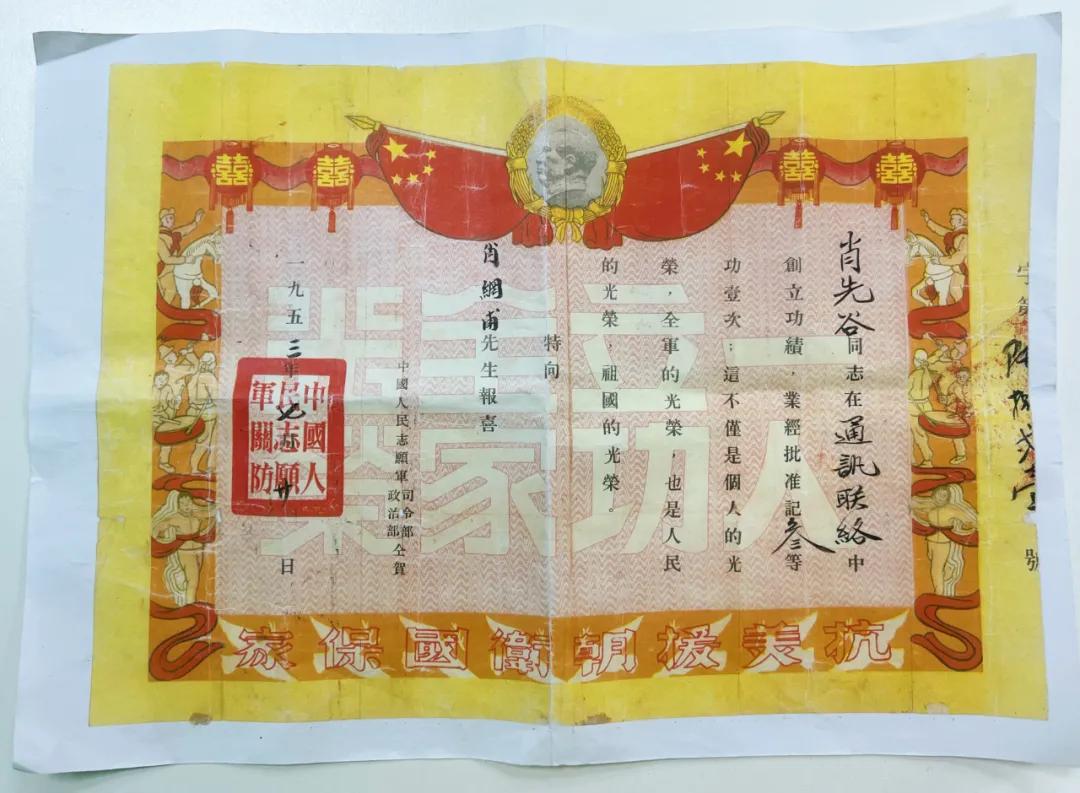 囍 囍 囍 囍
第
號
肖先谷同志在通訊联絡中
創立功績，業經批准記叁等
功壹次；這不僅是個人的光
榮，全軍的光榮，也是人民
的光榮、祖國的光榮。
特向
肖網甫先生報喜
中國人民志願軍司令部
政治部仝賀
一九五三年七月廿日
中國人
民志願
軍關防
一人
立功
全家
抗美援朝衛國保家